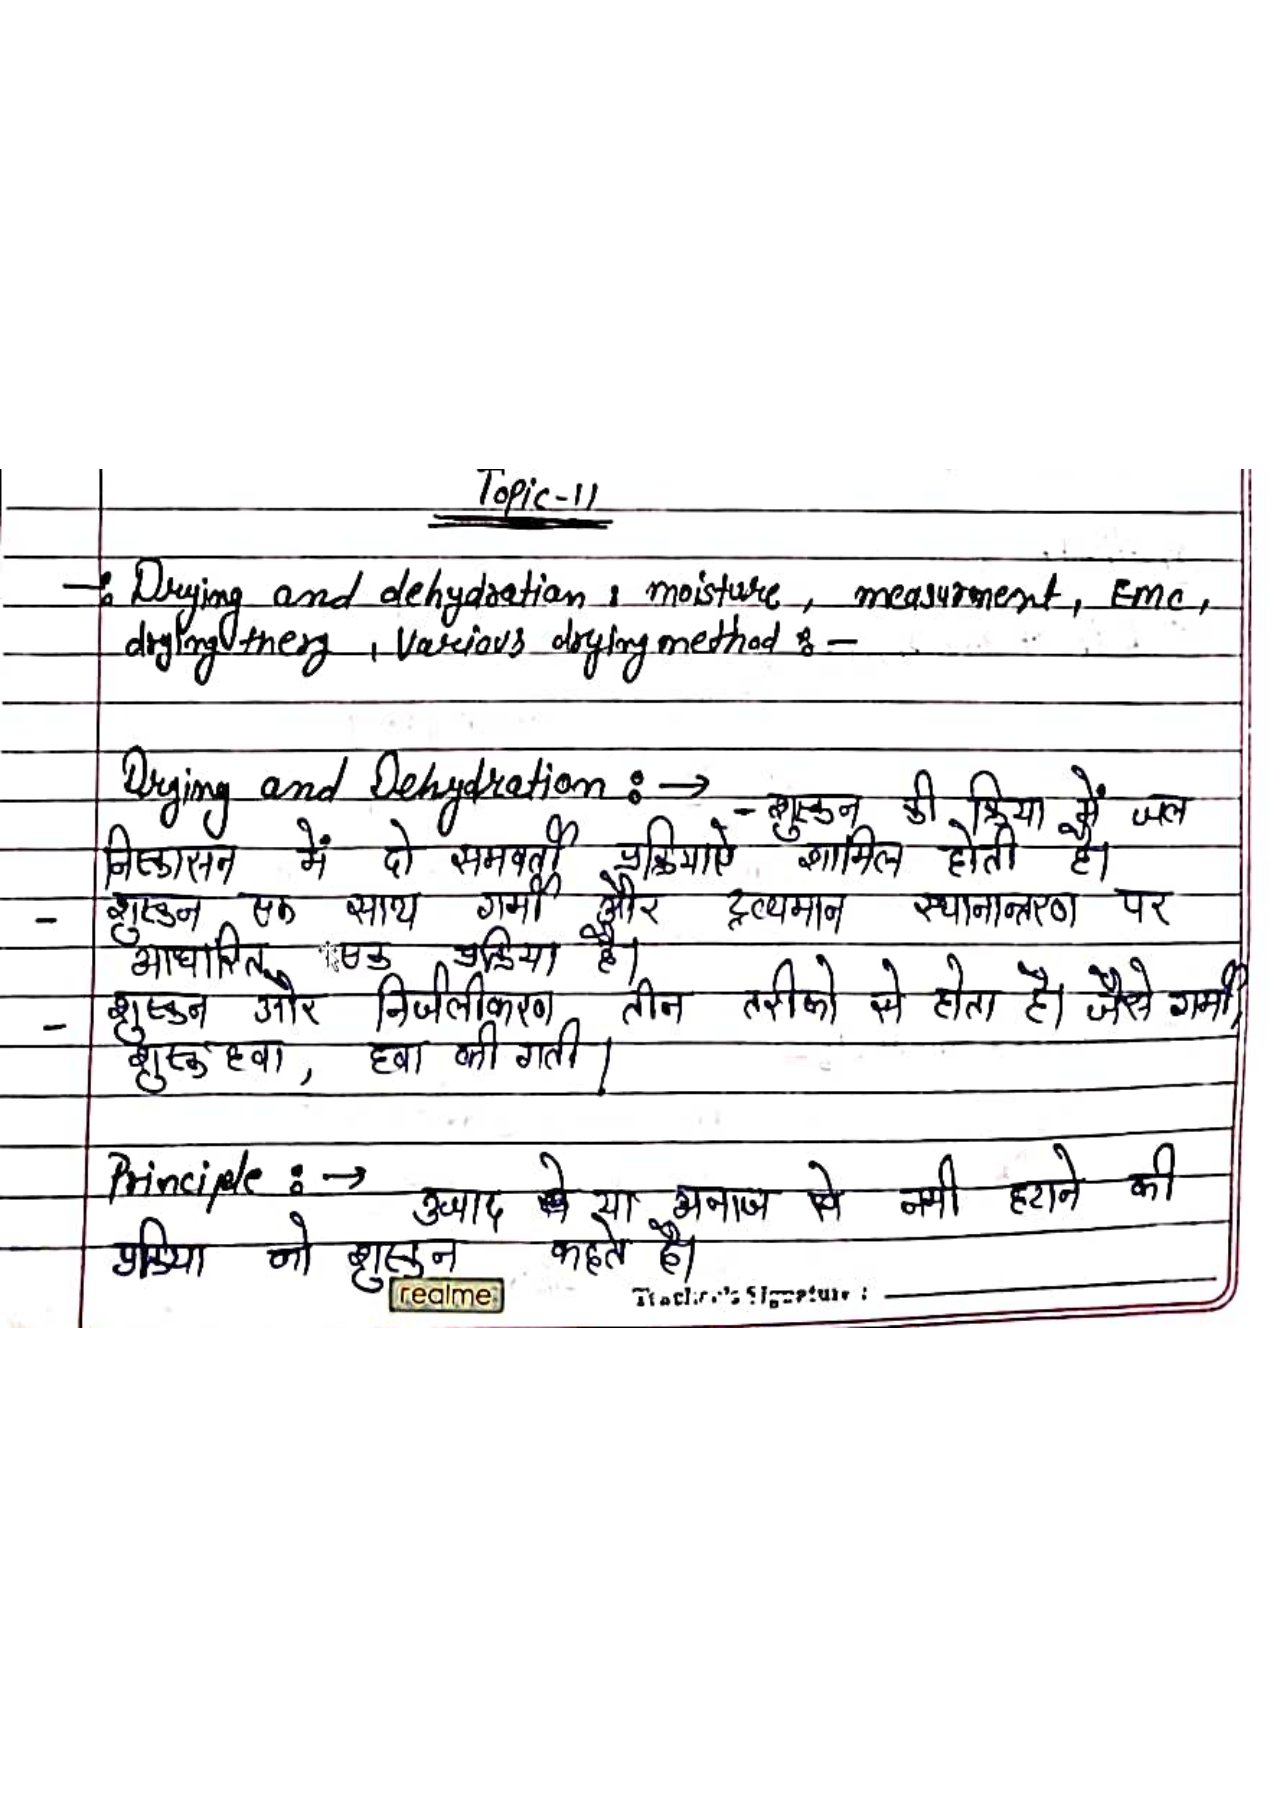 Topic-11
-: Drying and dehydration : moisture, measurment, EMC,
drying thery, Various drying method :-
Drying and Dehydration :→ - शुस्कन की क्रिया में जल
निस्कासन में दो समवर्ती प्रक्रियाऐ शामिल होती है।
- शुस्कन एक साथ गर्मी और द्रव्यमान स्थानान्तरण पर
आधारित एक प्रक्रिया है।
- शुस्कन और निर्जलीकरण तीन तरीको से होता है। जैसे गर्मी,
शुस्क हवा, हवा की गती।
Principle :→ उत्पाद से या अनाज से नमी हटाने की
प्रक्रिया को शुस्कन कहते है।
realme
Teacher's Signature :